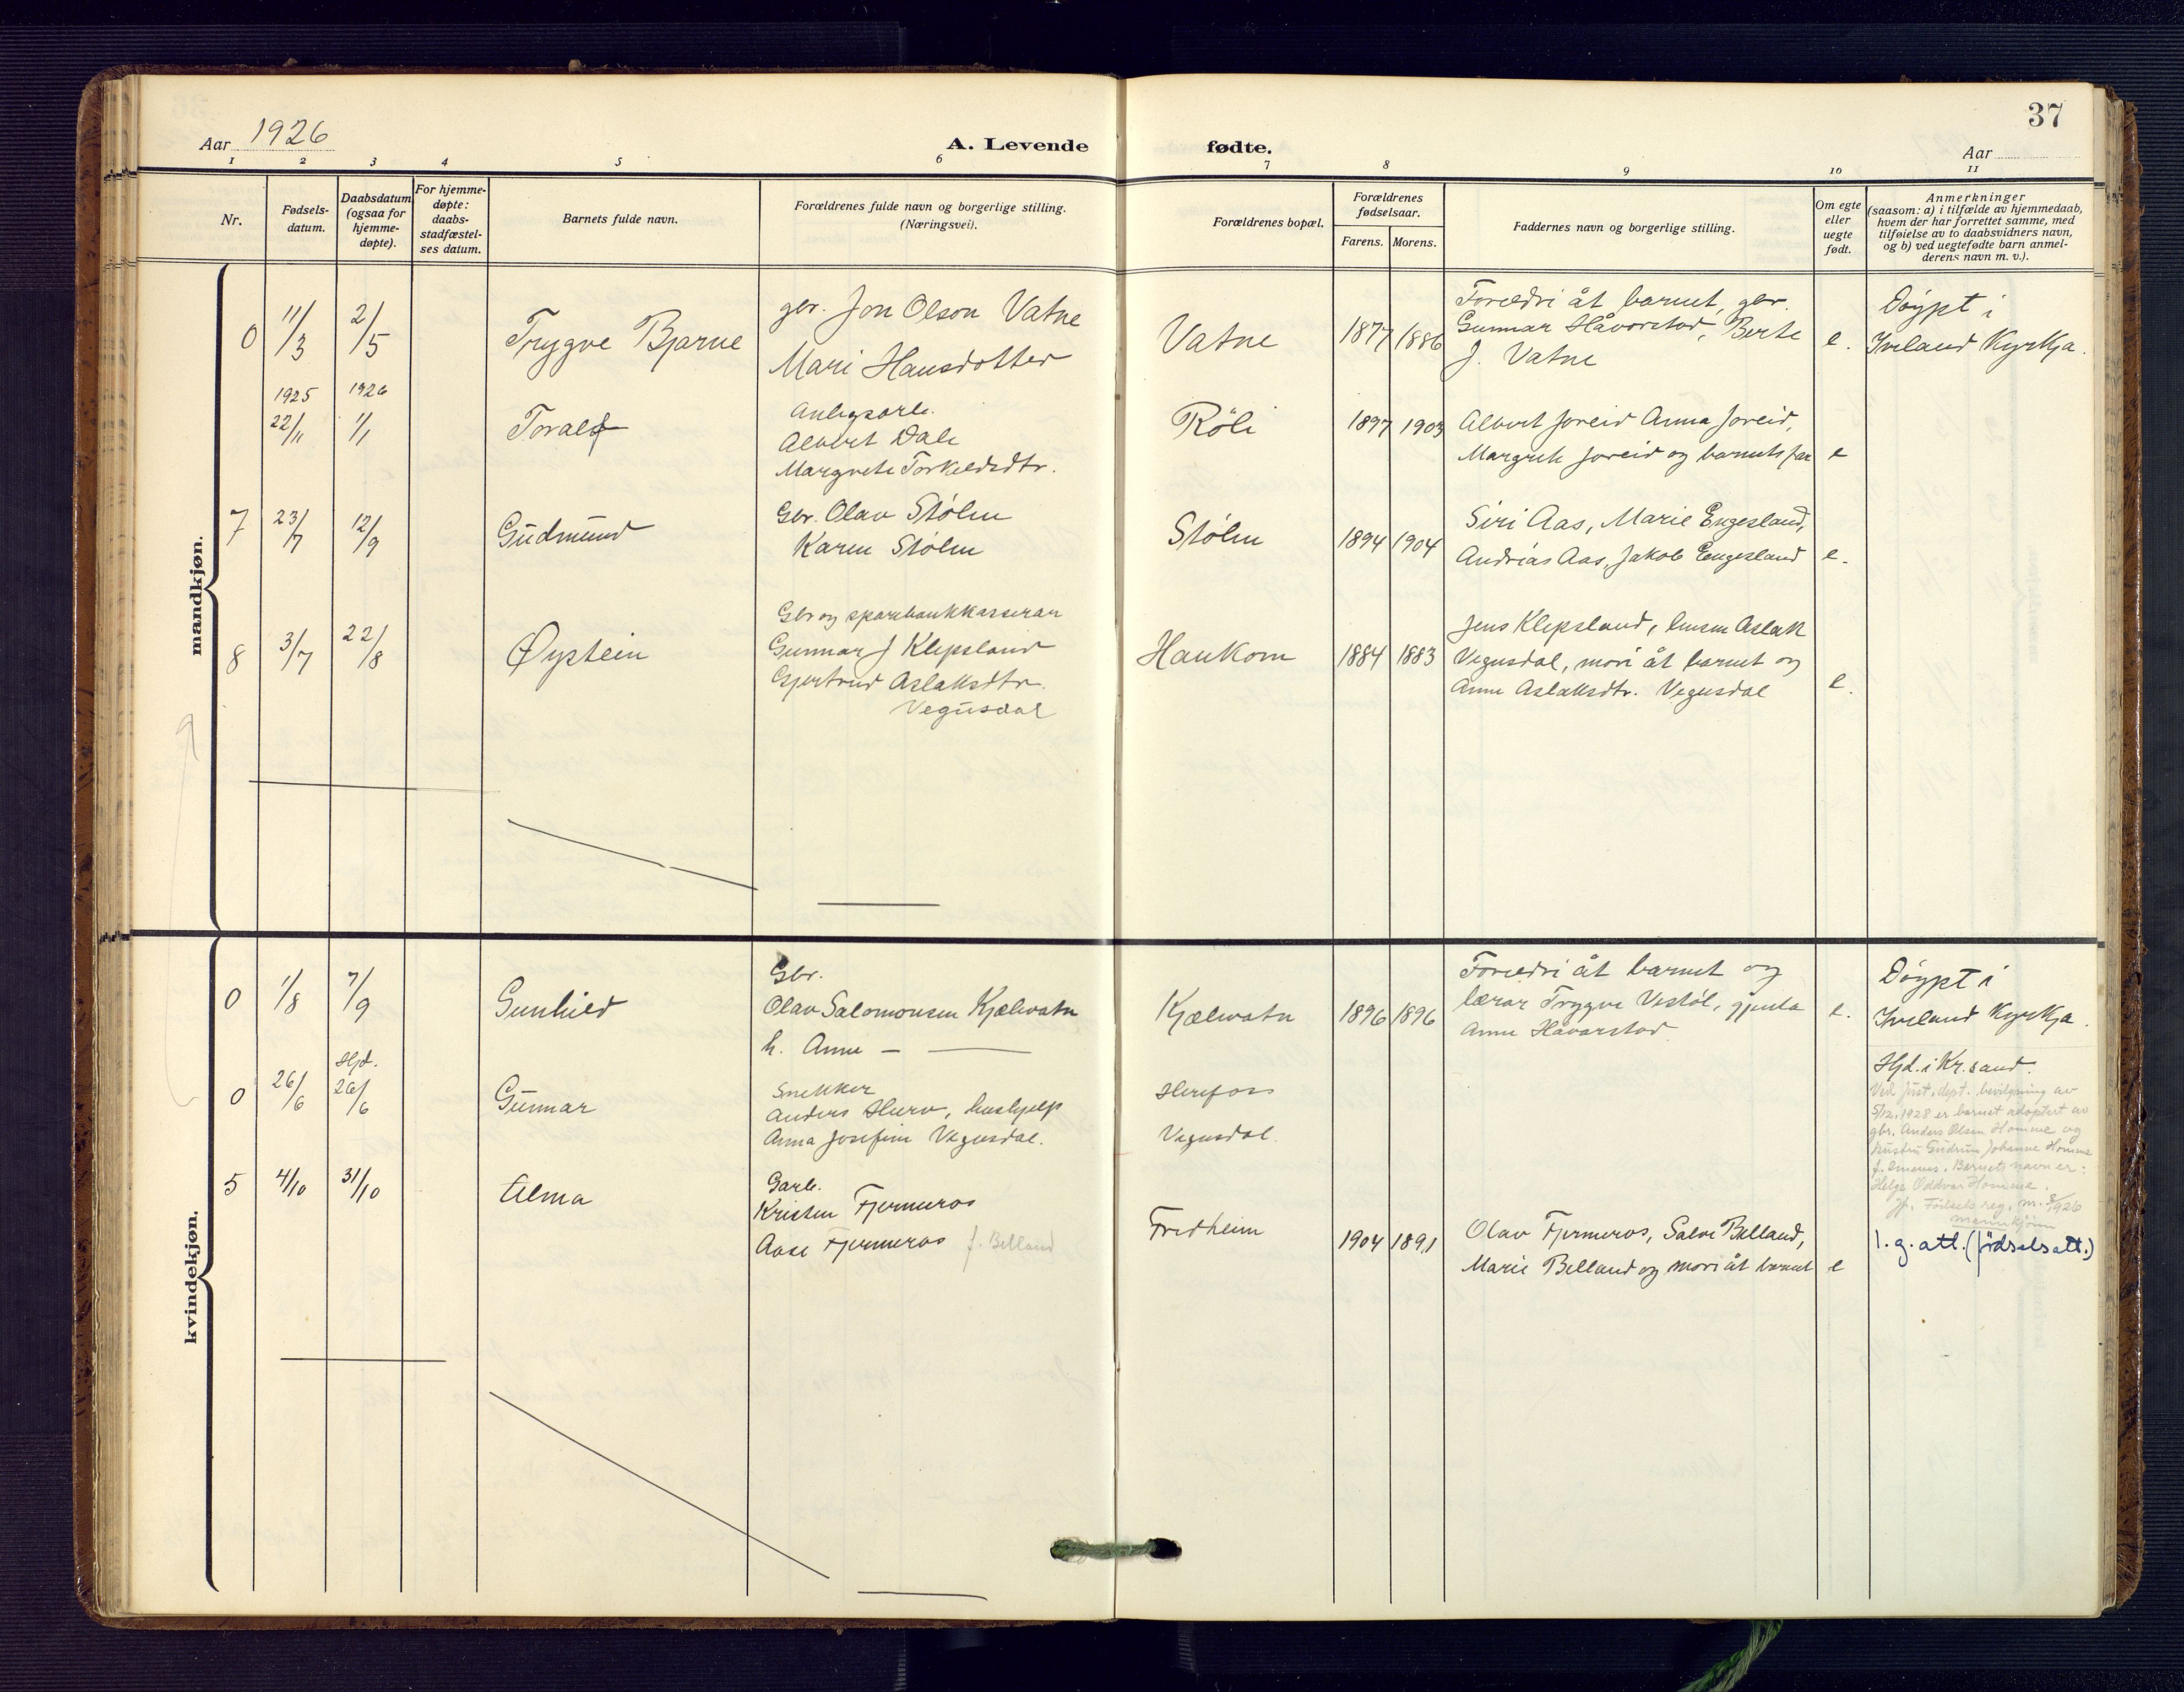 37
Aar 1926
A. Levende fødte.
Aar
1 2 3 4 5 6 7 8 9 10 11
Nr.
Fødsels-
datum.
Daabsdatum
(ogsaa for
hjemme-
døpte).
For hjemme-
døpte:
daabs-
stadfæstel-
ses datum.
Barnets fulde navn.
Forældrenes fulde navn og borgerlige stilling.
(Næringsvei).
Forældrenes bopæl.
Forældrenes
fødselsaar.
Farens. Morens.
Faddernes navn og borgerlige stilling.
Om egte
eller
uegte
født.
Anmerkninger
(saasom: a) i tilfælde av hjemmedaab,
hvem der har forrettet samme, med
tilføielse av to daabsvidners navn,
og b) ved uegtefødte barn anmel-
derens navn m. v.).
mandkjøn.
0 11/3 2/5 Trygve Bjarne
gbr. Jon Olson Vatne
Mari Hansdotter
Vatne 1877 1886
Foreldri åt barnet, gbr.
Gunnar Håvorstad, Berte
J. Vatne
e.
Døypt i
Iveland Kyrkja.
1925 1926
22/11 1/1 Toralf
Anlegsarb.
Albert Dale
Margrete Torkeldsdtr.
Röli 1897 1903
Albert Joreid Anna Joreid,
Margrete Joreid og barnets far
e
7 23/7 12/9 Gudmund
Gbr. Olav Stølen
Karen Stølen
Stølen 1894 1904
Siri Aas, Marie Engesland,
Andrias Aas, Jakob Engesland
e.
8 3/7 22/8 Øystein
Gbr og sparebankkasserar
Gunnar J Klepsland
Gjertrud Aslaksdtr.
Vegusdal
Haukom 1884 1883
Jens Klepsland, Aslak
Vegusdal, mori åt barnet og
Anne Aslaksdtr. Vegusdal
e.
kvindekjøn.
0 1/8 7/9 Gunhild
Gbr.
Olav Salomonsen Kjælevatn
h. Anne —
Kjælevatn 1896 1896
Foreldri åt barnet og
lærar Trygve Vestøl, gjenta
Anne Håvarstad.
e.
Døypt i
Iveland Kyrkja.
0 26/6 Hjd. 26/6 Gunnar
Snekker
Anders Herev, hushjelp
Anna Josefine Vegusdal.
Herefoss
Vegusdal.
Hjd. i Kr.sand.
Ved Just. dept. bevilgning av
5/12. 1928 er barnet adoptert av
gbr. Anders Olsen Homme og
hustru Gudrun Johanne Homme
f. Barnets navn er:
Helge Oddvar Homme.
Jfr. Fødselsreg. nr. 8/1926
mannkjønn
5 4/10 31/10 Alma
Garb.
Kristen Fjermeros
Aase Fjermeros f. Belland
Fredheim 1904 1891
Olav Fjermeros, Salve Belland,
Marie Belland og mori åt barnet
e
1. g. att. (fødselsatt.)